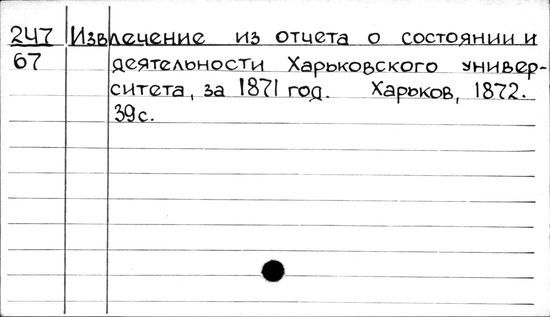 247 Извлечение из отчета о состоянии и
67 деятельности Харьковского универ-
ситета, за 1871 год. Харьков, 1872.
39с.